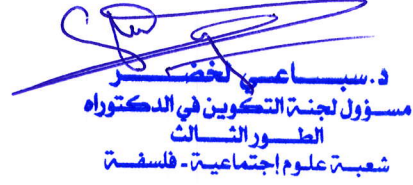 د.سباعي لخضر
مسؤول لجنة التكوين في الدكتوراه
الطور الثالث
شعبة علوم إجتماعية - فلسفة